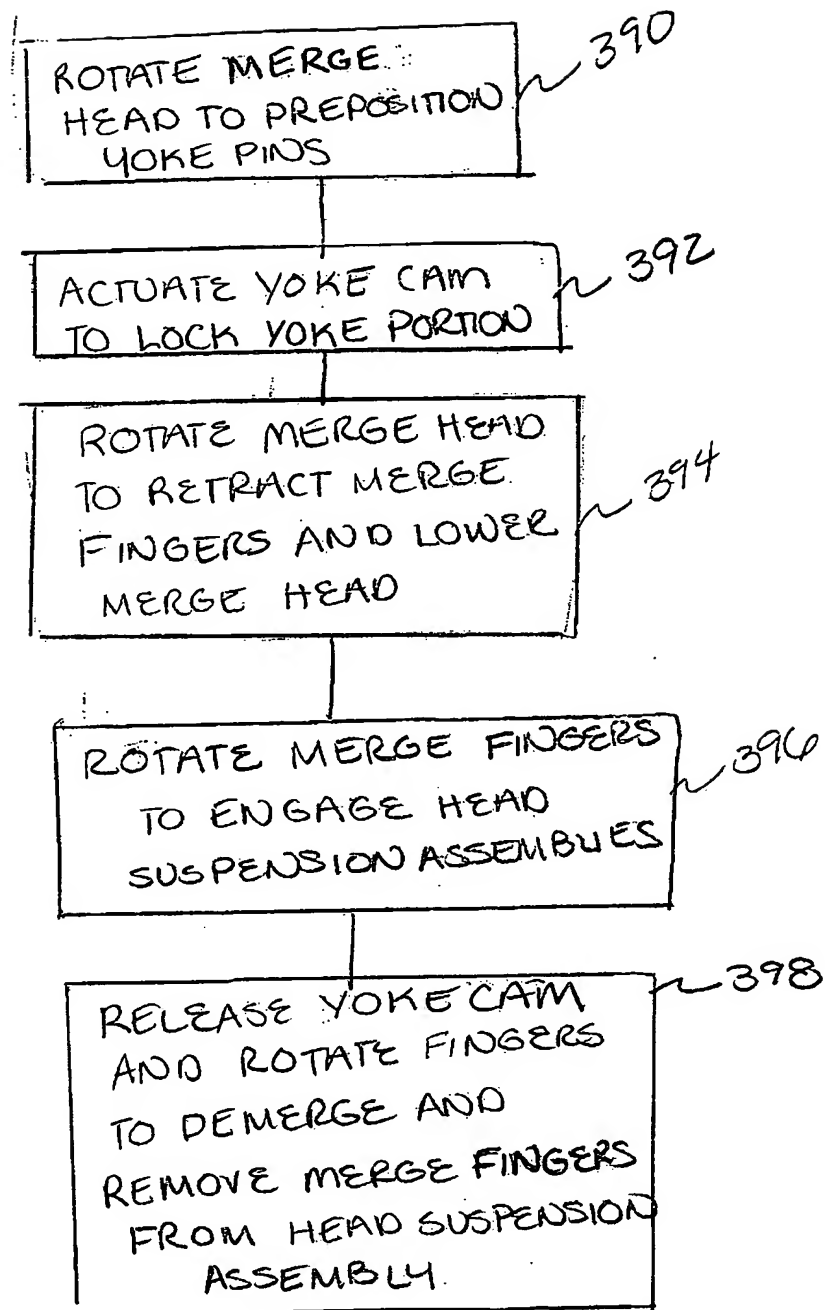 ROTATE MERGE
HEAD TO PREPOSITION
YOKE PINS
390
ACTUATE YOKE CAM
TO LOCK YOKE PORTION
392
ROTATE MERGE HEAD
TO RETRACT MERGE
FINGERS AND LOWER
MERGE HEAD
394
ROTATE MERGE FINGERS
TO ENGAGE HEAD
SUSPENSION ASSEMBLIES
396
RELEASE YOKE CAM
AND ROTATE FINGERS
TO DEMERGE AND
REMOVE MERGE FINGERS
FROM HEAD SUSPENSION
ASSEMBLY.
398